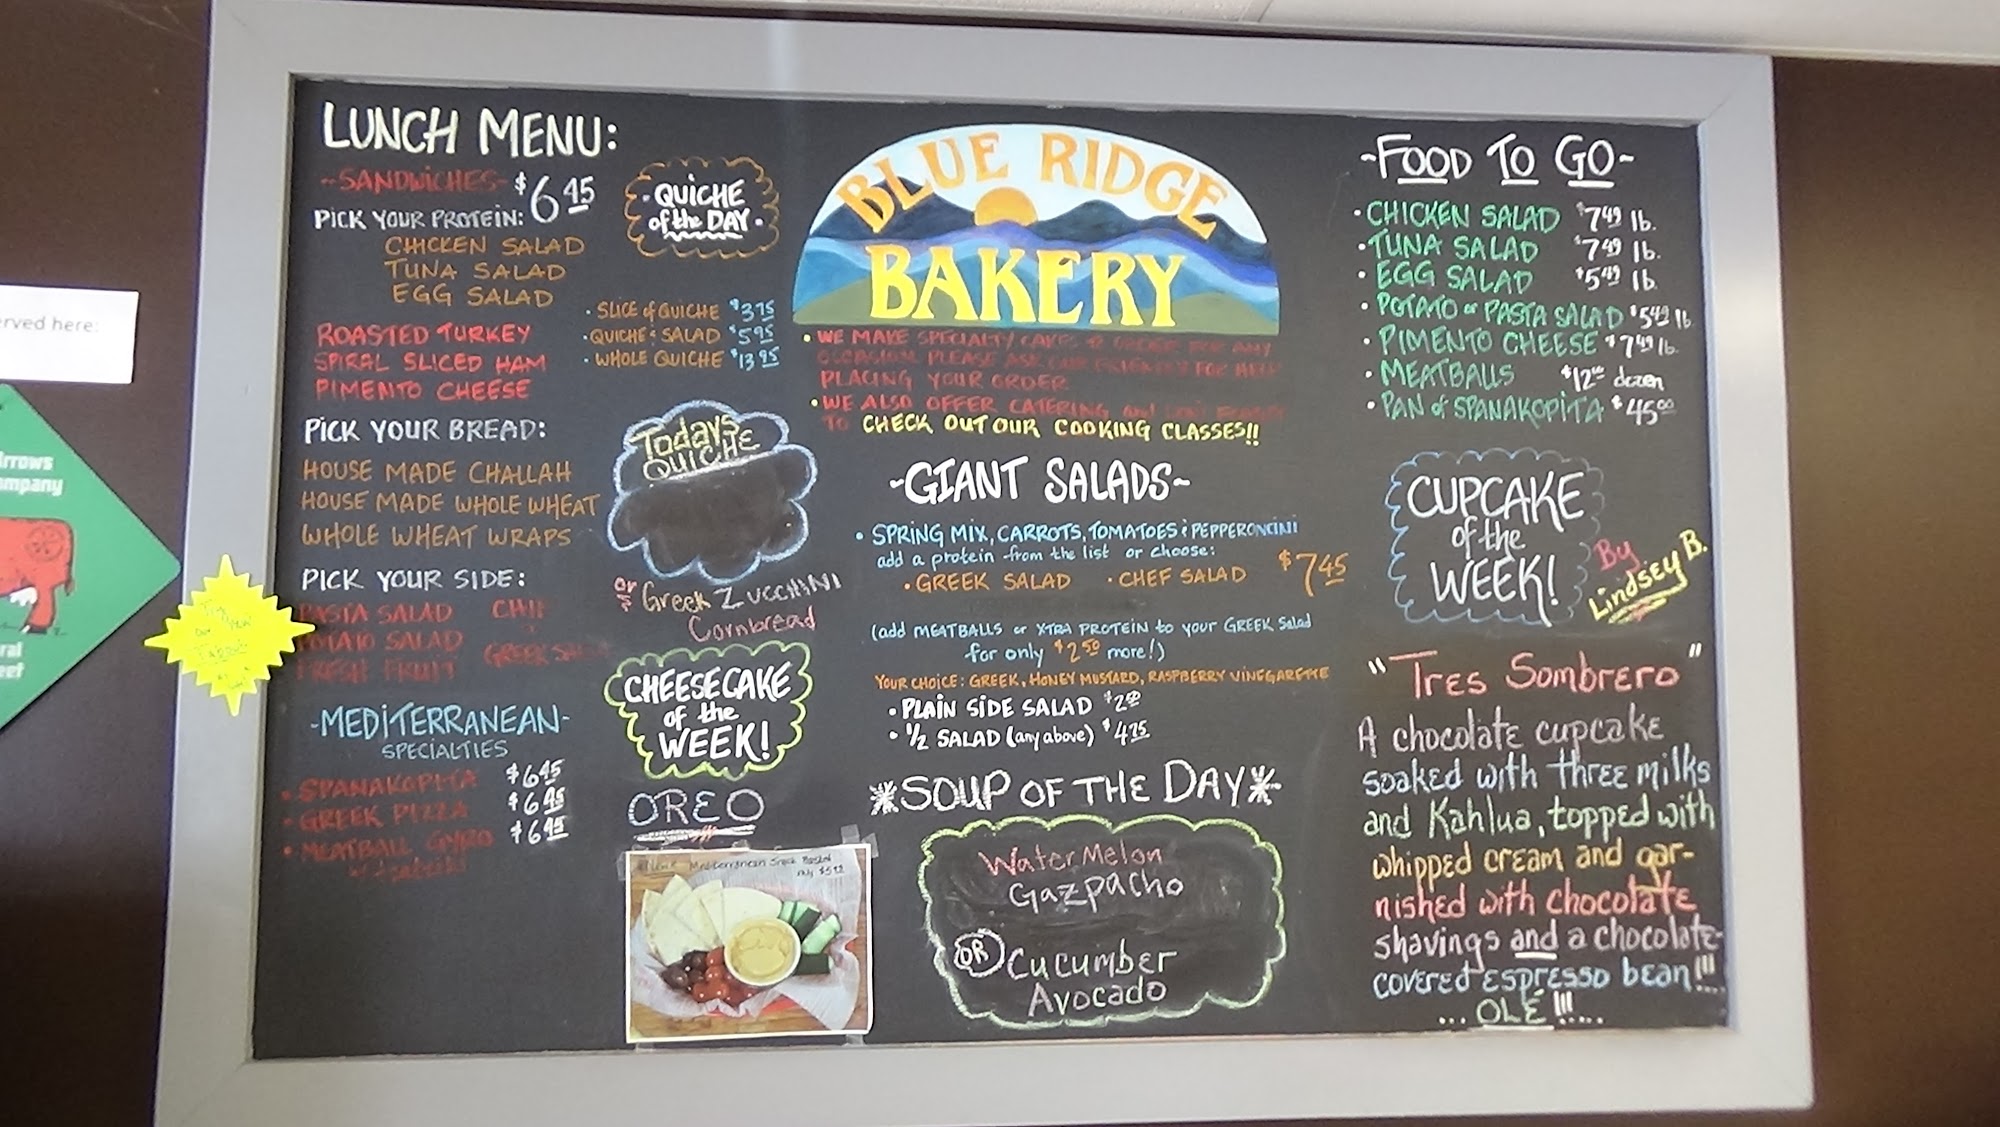 LUNCH MENU:
-SANDWICHES- $6.45
PICK YOUR PROTEIN:
CHICKEN SALAD
TUNA SALAD
EGG SALAD
ROASTED TURKEY
SPIRAL SLICED HAM
PIMENTO CHEESE
PICK YOUR BREAD:
HOUSE MADE CHALLAH
HOUSE MADE WHOLE WHEAT
WHOLE WHEAT WRAPS
PICK YOUR SIDE:
PASTA SALAD
POTATO SALAD
FRESH FRUIT GREEK
-MEDITERRANEAN-
SPECIALTIES
• SPANAKOPITA $6.45
• GREEK PIZZA $6.45
• MEATBALL GYRO $6.45
• QUICHE
of the DAY •
• SLICE of QUICHE $3.75
• QUICHE & SALAD $5.95
• WHOLE QUICHE $13.95
Todays
QUICHE
or Greek ZUCCHINI
Cornbread
CHEESECAKE
of the
WEEK!
OREO
Mediterranean Snack
BLUE RIDGE
BAKERY
• WE MAKE SPECIALTY CAKES TO ORDER FOR ANY
OCCASION. PLEASE ASK FOR HELP
PLACING YOUR ORDER
• WE ALSO OFFER CATERING and DON'T FORGET
TO CHECK OUT OUR COOKING CLASSES!!
-GIANT SALADS-
• SPRING MIX, CARROTS, TOMATOES & PEPPERONCINI
add a protein from the list or choose:
• GREEK SALAD • CHEF SALAD $7.45
(add MEATBALLS or XTRA PROTEIN to your GREEK Salad
for only $2.50 more!)
YOUR CHOICE: GREEK, HONEY MUSTARD, RASPBERRY VINEGARETTE
• PLAIN SIDE SALAD $2.00
• 1/2 SALAD (any above) $4.75
*SOUP OF THE DAY*
WaterMelon
Gazpacho
OR Cucumber
Avocado
-FOOD TO GO-
• CHICKEN SALAD $7.49 lb.
• TUNA SALAD $7.49 lb.
• EGG SALAD $5.49 lb.
• POTATO or PASTA SALAD $5.49 lb.
• PIMENTO CHEESE $7.49 lb.
• MEATBALLS $12.00 dozen
• PAN of SPANAKOPITA $45.00
CUPCAKE
of the
WEEK!
By
Lindsey B.
"Tres Sombrero"
A chocolate cupcake
soaked with three milks
and Kahlua, topped with
whipped cream and gar-
nished with chocolate
shavings and a chocolate-
covered espresso bean!!!
... OLÉ!!!.....
erved here:
Arrows
ompany